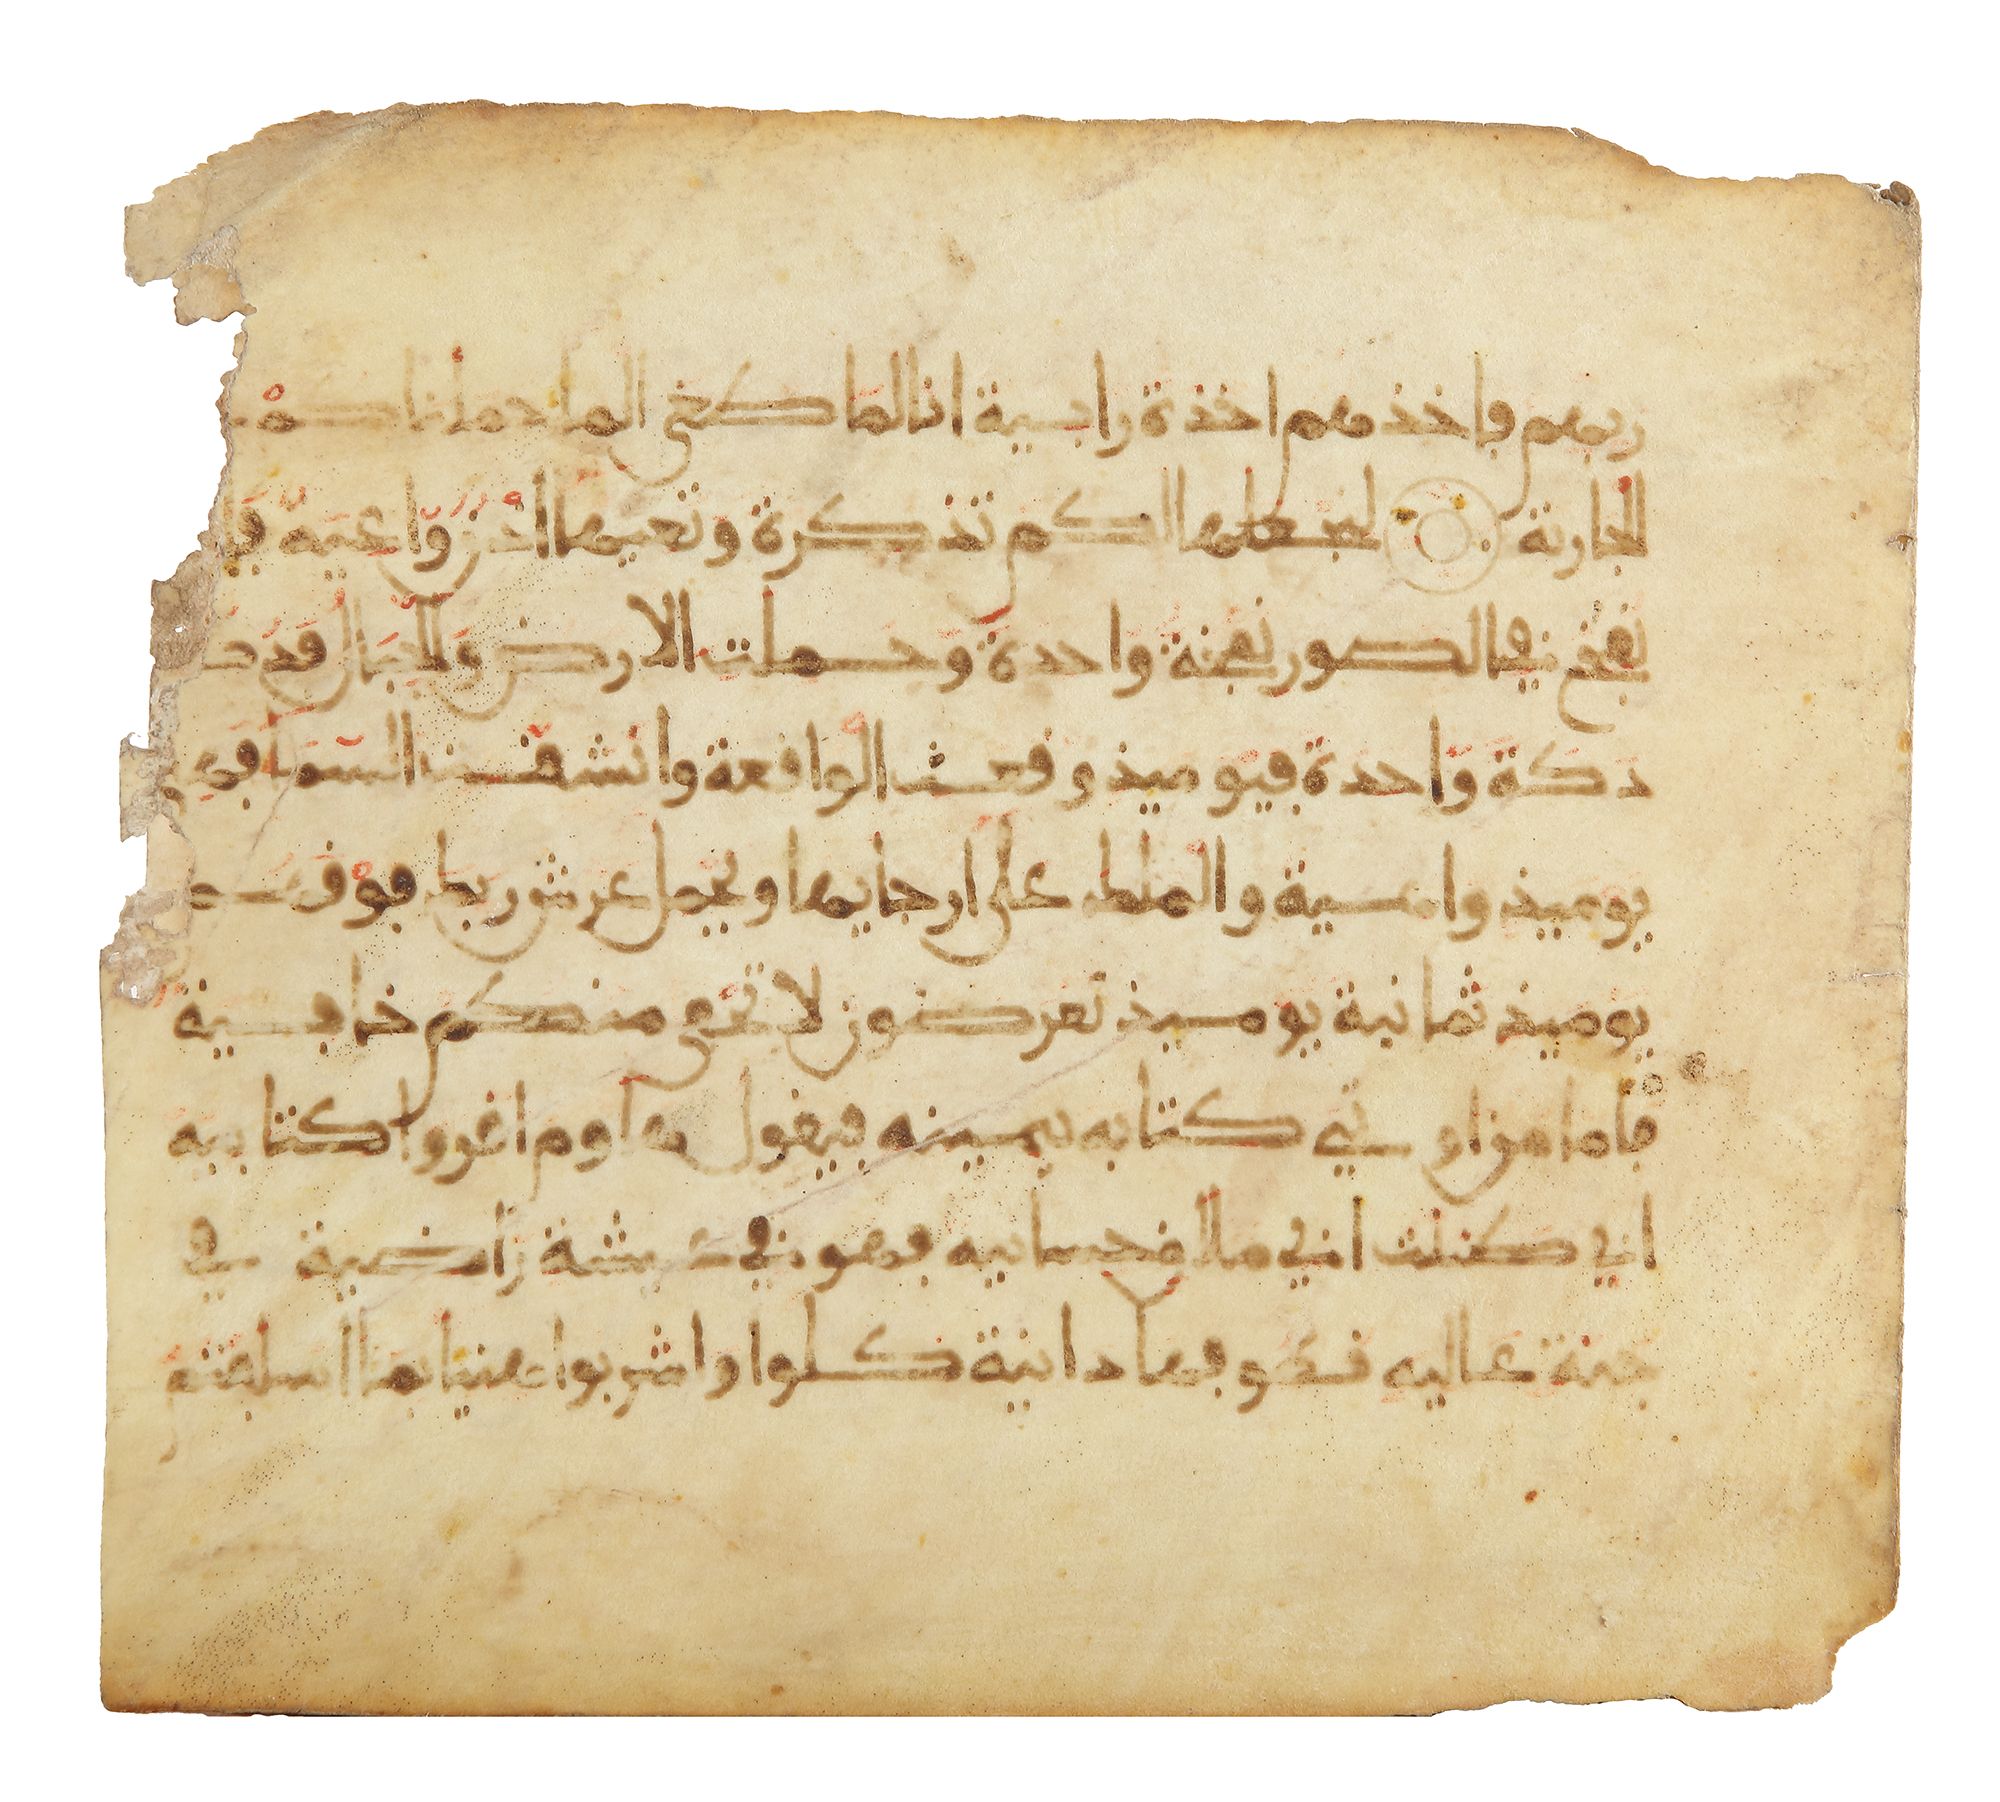 ربهم فاخذهم اخذة رابية انا لما طغى الما حملناكم
الجارية لنجعلها لكم تذكرة وتعيها اذن واعية فا
نفخ في الصور نفخة واحدة وحملت الارض والجبال فد
دكة واحدة فيوميذ وقعت الواقعة وانشقت السما فهي
يوميذ واهية والملك على ارجايها ويحمل عرش ربك فوقهم
يوميذ ثمانية يوميذ تعرضون لا تخفى منكم خافية
فاما من اوتي كتابه بيمينه فيقول هاوم اقروا كتابيه
اني ظننت اني ملاق حسابيه فهو في عيشة راضية في
جنة عاليه قطوفها دانية كلوا واشربوا هنيا بما اسلفتم